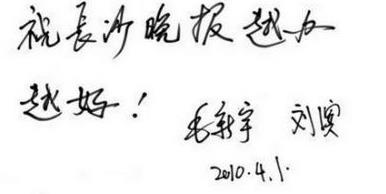 祝長沙晚报越办
越好！
毛新宇 刘滨
2010.4.1.